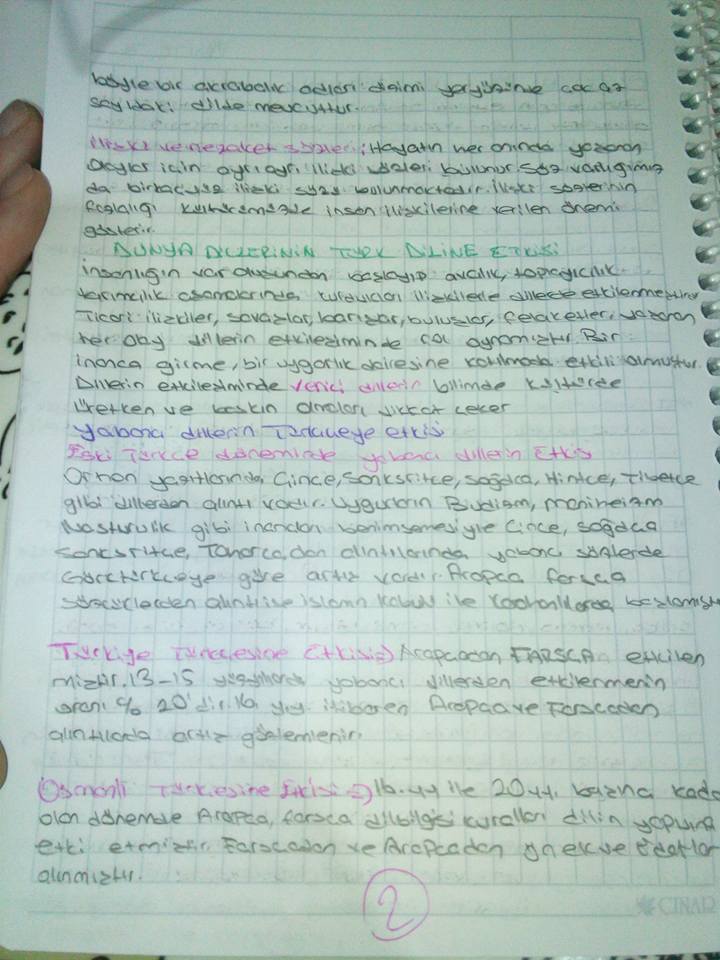 böyle bir akrabalık adları dizimi yeryüzünde çok az
sayıdaki dilde mevcuttur.
İlişki ve nezaket sözleri; Hayatın her anında yaşanan
olaylar için ayrı ayrı ilişki sözleri bulunur. Söz varlığımız
da birkaç yüz ilişki sözü bulunmaktadır. İlişki sözlerinin
fazlalığı kültürümüzde insan ilişkilerine verilen önemi
gösterir.
DÜNYA DİLLERİNİN TÜRK DİLİNE ETKİSİ
İnsanlığın var oluşundan başlayıp avcılık, toplayıcılık
tarımcılık aşamalarında, kurdukları ilişkilerle dillerde etkilenmiştir
Ticari ilişkiler, savaşlar, barışlar, buluşlar, felaketler, yaşanan
her olay dillerin etkileşiminde rol oynamıştır. Bir
inanca girme, bir uygarlık dairesine katılmada etkili olmuştur.
Dillerin etkileşiminde verici dillerin bilimde kültürde
üretken ve baskın olmaları dikkat çeker
Yabancı dillerin Türkçeye etkisi
Eski Türkçe döneminde yabancı dillerin Etkisi
Orhon yazıtlarında Çince, Sanksritçe, Soğdca, Hintçe, Tibetçe
gibi dillerden alıntı vardır. Uygurların Budizm, maniheizm
Nasturulik gibi inançları benimsemesiyle Çince, soğdca
sanksritçe, Toharca,dan alıntılarında yabancı sözlerde
Göktürkçeye göre artış vardır. Arapça farsça
sözcüklerden alıntı ise islamın kabulü ile Karahanlılarda başlamıştır
Türkiye Türkçesine Etkisi⇒ Arapçadan FARSÇA etkilen
miştir. 13-15 yüzyıllarda yabancı dillerden etkilenmenin
oranı % 20'dir. 16. yy. itibaren Arapça ve Farsçadan
alıntılada artış gözlemlenir.
Osmanlı Türkçesine Etkisi ⇒) 16. yy ile 20 yy. başına kada
olan dönemde Arapça, farsça dilbilgisi kuralları dilin yapısına
etki etmiştir. Farsçadan ve Arapçadan ön ek ve Edatlar
alınmıştır.
2
ÇINAR